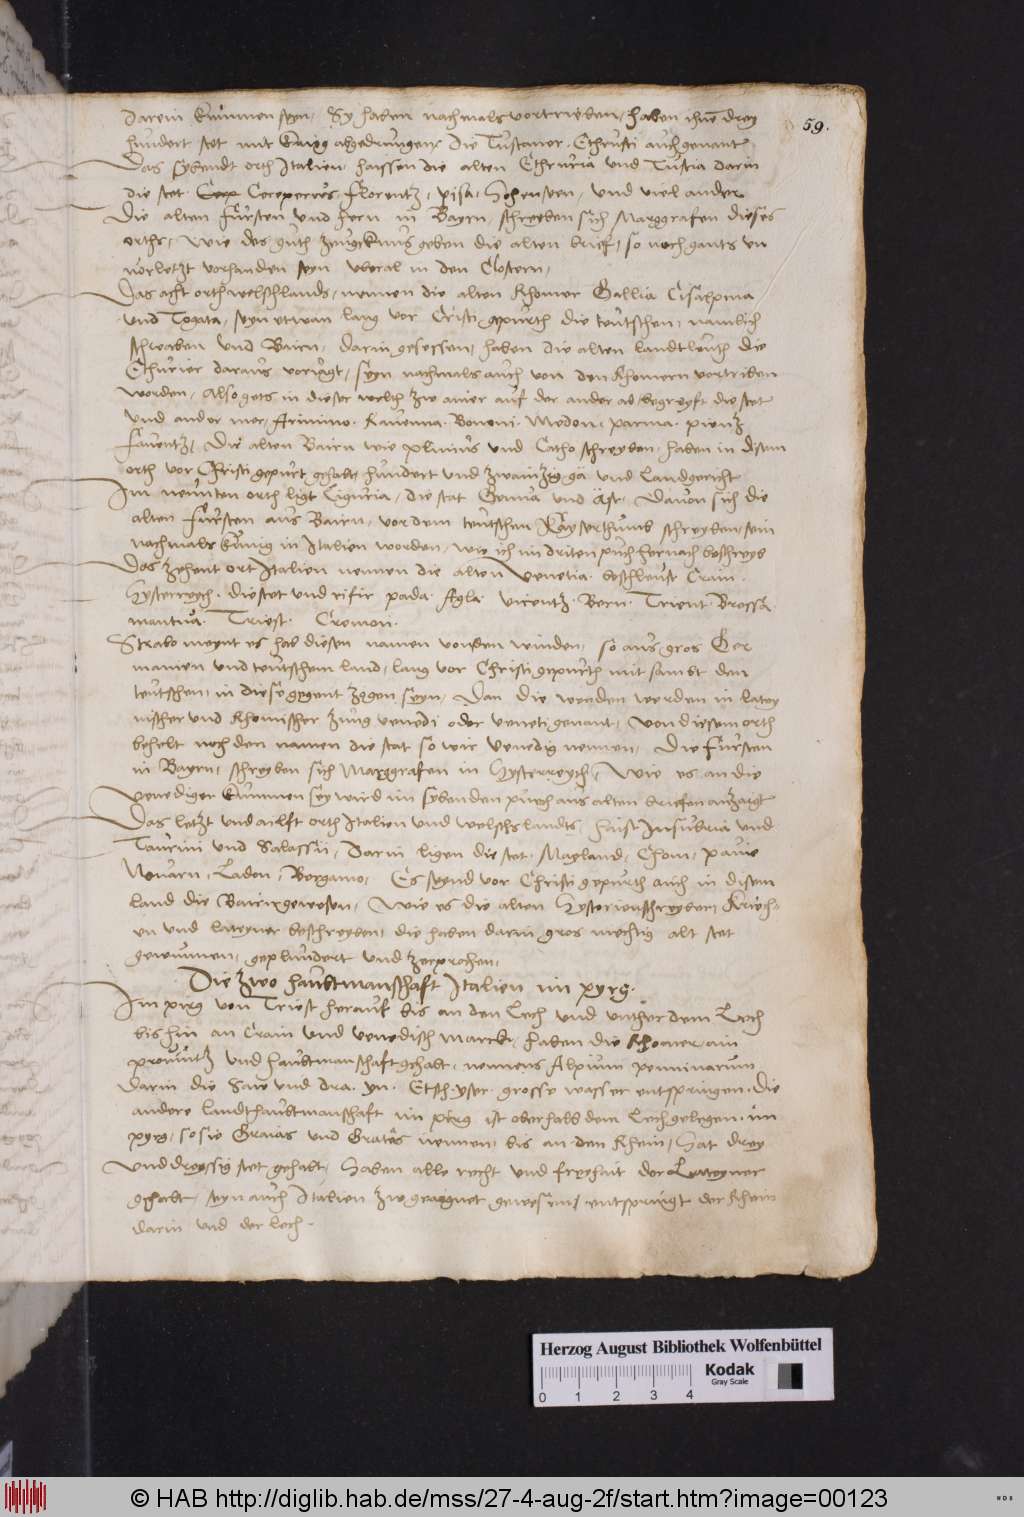 59.
darein kummen seyn, Sy haben nachmals vortrieben, haben ihne drey
hundert stet mit krieg abgedrungen, Die Tuscaner Ethrusci auch genant
Das sybendt orth Italien haissen die alten Ethruria und Tuscia darin
die stet Florentz, pisa, Hohensten, und viel ander
Die alten Fürsten und hern in Bayrn, schreyben sich Marggrafen dieses
orths, wie des guth zeugcknus geben die alten brief, so noch gants un
vorletzt vorhanden seyn uberal in den Clostern,
Das acht orth welschlands, nennen die alten Rhomer Gallia Cisalpina
und Togata, seyn etwan lang vor Cristi gepurth die teutschen, namlich
schwaben und Bairn, darin gesessen, haben die alten landtleuth die
Ethurier daraus voriagt, seyn nachmals auch von den Rhomern vortriben
worden, Also gets in dieser welth zw ainer auf der ander ab, begreyft die stet
und ander mer, Arimino. Ravenna. Bononi. Meden, parma. pientz
Faventz, Die alten Bairn wie plinius und Catho schreyben, haben in disem
orth vor Christi gepurt gehabt, hundert und zwaintzig gä und Landgericht
Im neunten orth ligt Liguria, die stat Genua und Ast, Davon sich die
alten Fursten aus Bairn, vor dem teutschen Kayserthumb schreyben, sein
nachmals kunig in Italien worden, wie ich im driten puch hernach beschreyb
Das zehent ort Italien nennen die alten Venetia. beschleust Crain.
Hysterreych. die stet und rifir pada. Agla. vicentz. Bern. Trient. Bressa
mantua. Triest. Cremon.
Strabo meynt es hab diesen namen von den winden, so aus gros Ger
manien und teutschem land, lang vor Christi gepurth mit sambt den
teutschen, in diese gegent zogen seyn, Dan die wenden werden in latey
nischer und Rhomischer zung venedi oder veneti genant, Von diesem orth
behelt noch den namen die stat so wir Venedig nennen, Die Fürsten
in Bayrn, schreyben sich Marggrafen in Hysterreych, Wie es an die
Venediger kummen sey wird im sybenden puech aus alten briefen anzaigt
Das letzt und ailft orth Italien und welschslandts, haist Insubria und
Taurini und Salassii, Darin ligen die stet. Mayland, Chom, pavie
Novarn, Laden, Bergamo, Es seynd vor Christi gepurth auch in disem
land die Bairn gewesen, Wie es die alten Hystorienschreyber, Kriech-
en und lateyner beschreyben, die haben darin gros mechtig alt stet
gewunnen, geplundert und zerprochen,
Die zwo haubtmanschaft Italien im pyrg.
Im pirg von Triest herauf bis an den Lech und unther dem Lech
bis hin an Crain und venedisch marckt, haben die Rhomer, ain
provintz und haubtmanschaft gehabt, nennens Alpium penninarum
Darin die Saw und dra. yn. Etsch. yser grosse wasser entspringen. Die
andere landthaubtmanschaft im pirg ist oberhalb dem Lech gelegen, im
pyrg, so sie Graias und Grates nennen, bis an den Rhein, Hat drey
und dreyssig stet gehabt, Haben alle recht und freyhait der Lateyner
gehabt, seyn auch Italien zwgeaygnet gewesen, entspringt der Rhein
darin und der lech.
Herzog August Bibliothek Wolfenbüttel
Kodak
Gray Scale
0 1 2 3 4
© HAB http://diglib.hab.de/mss/27-4-aug-2f/start.htm?image=00123